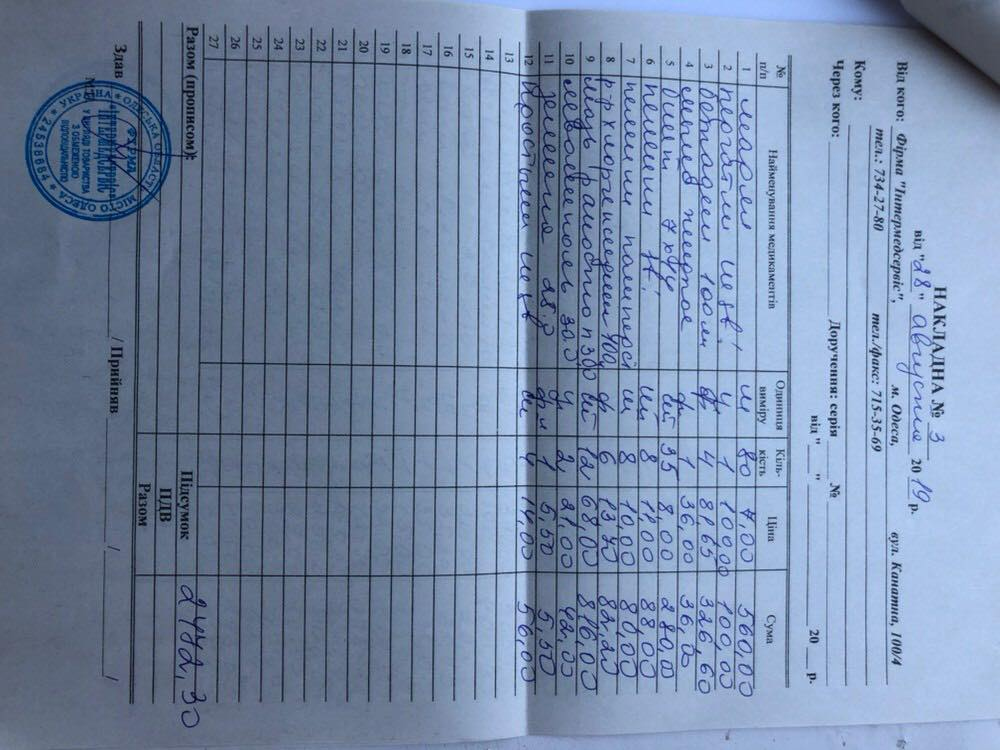 НАКЛАДНА № 3
від "28" августа 2019 р.
Від кого: Фірма "Інтермедсервіс", м. Одеса, вул. Канатна, 100/4
тел.: 734-27-80 тел./факс: 715-35-69
Кому:
Через кого: Доручення: серія № від "   " 20    р.
№ п/п Найменування медикаментів Одиниця виміру Кіль-кість Ціна Сума
1 марля м 80 7,00 560,00
2 перчатки у 1 100,00 100,00
3 бетадин 100 мл ф 4 81,65 326,60
4 ф 1 36,00 36,00
5 бинт шт 35 8,00 280,00
6 пелёнки шт 8 11,00 88,00
7 пелёнки ш 8 10,00 80,00
8 р-р хлоргексидин 100 ф 6 13,70 82,20
9 мазь шт 12 68,00 816,00
10 у 2 21,00 42,00
11 зеленка фл 1 5,50 5,50
12 шт 4 14,00 56,00
13
14
15
16
17
18
19
20
21
22
23
24
25
26
27
Разом (прописом):
Підсумок 2472,30
ПДВ
Разом
Здав / Прийняв / /
УКРАЇНА * ОДЕСЬКА ОБЛАСТЬ МІСТО ОДЕСА * 24538664 *
ФІРМА
"ІНТЕРМЕДСЕРВІС"
У ВИГЛЯДІ ТОВАРИСТВА
З ОБМЕЖЕНОЮ
ВІДПОВІДАЛЬНІСТЮ